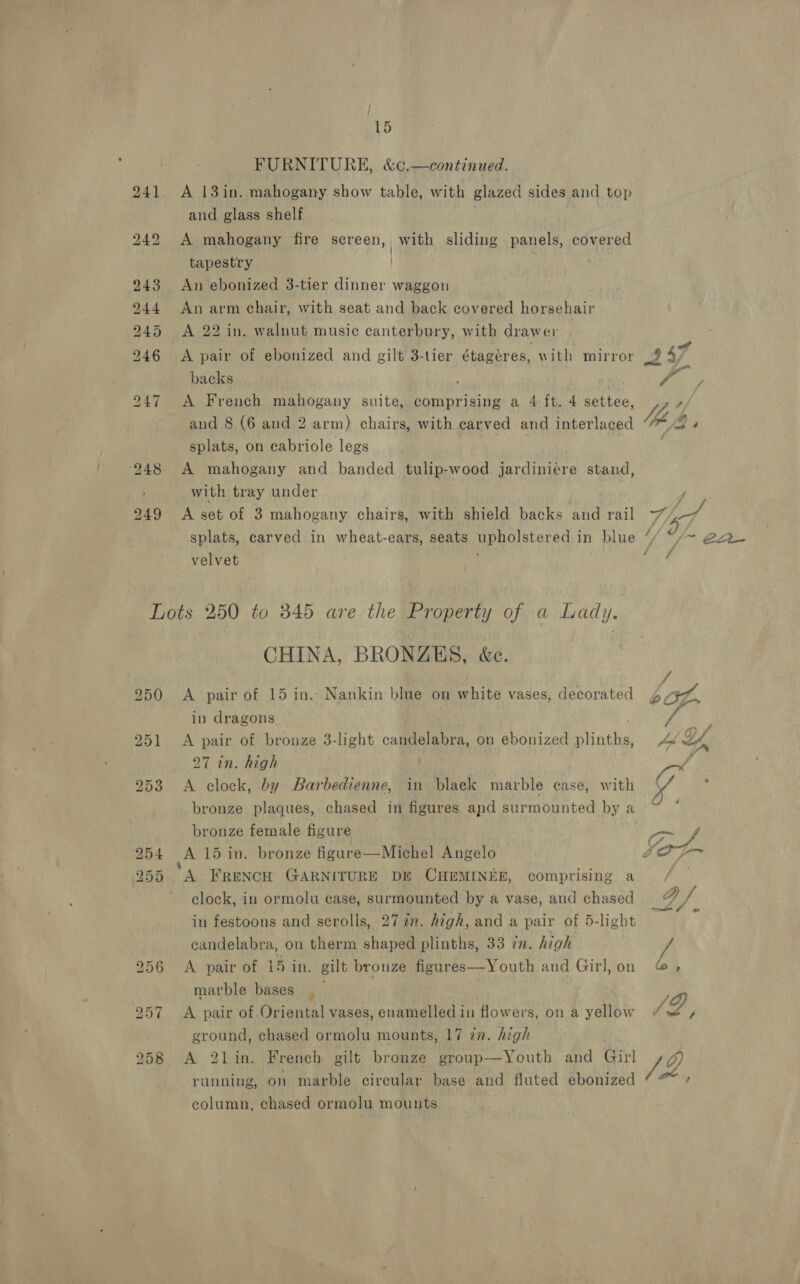 15
FURNITURE, &c.—continued.
241 A 13in. mahogany show table, with glazed sides and top
and glass shelf
242 A mahogany fire screen, with sliding panels, covered
tapestry
243 An ebonized 3-tier dinner waggon
244 An arm chair, with seat and back covered horsehair
245 A 22 in. walnut music canterbury, with drawer
246 A pair of ebonized and gilt 3-tier étagères, with mirror
backs
247 A French mahogany suite, comprising a 4 ft. 4 settee,
and 8 (6 and 2 arm) chairs, with carved and interlaced
splats, on cabriole legs
248 A mahogany and banded tulip-wood jardinière stand,
with tray under
249 A set of 3 mahogany chairs, with shield backs and rail
splats, carved in wheat-ears, seats upholstered in blue
velvet
Lots 250 to 345 are the Property of a Lady.
CHINA, BRONZES, &c.
250 A pair of 15 in. Nankin blue on white vases, decorated
in dragons
251 A pair of bronze 3-light candelabra, on ebonized plinths,
27 in. high
253 A clock, by Barbedienne, in black marble case, with
bronze plaques, chased in figures and surmounted by a
bronze female figure
254 A 15 in. bronze figure—Michel Angelo
255 A FRENCH GARNITURE DE CHEMINÉE, comprising a
clock, in ormolu case, surmounted by a vase, and chased
in festoons and scrolls, 27 in. high, and a pair of 5-light
candelabra, on therm shaped plinths, 33 in. high
256 A pair of 15 in. gilt bronze figures—Youth and Girl, on
marble bases
257 A pair of Oriental vases, enamelled in flowers, on a yellow
ground, chased ormolu mounts, 17 in. high
258 A 21in. French gilt bronze group—Youth and Girl
running, on marble circular base and fluted ebonized
column, chased ormolu mounts